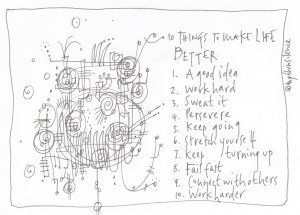 10 THINGS TO MAKE LIFE
BETTER
1. A good idea
2. Work hard
3. Sweat it
4. Persevere
5. Keep going
6. Stretch yourself
7. Keep turning up
8. Fail fast
9. Connect with others
10. Work harder